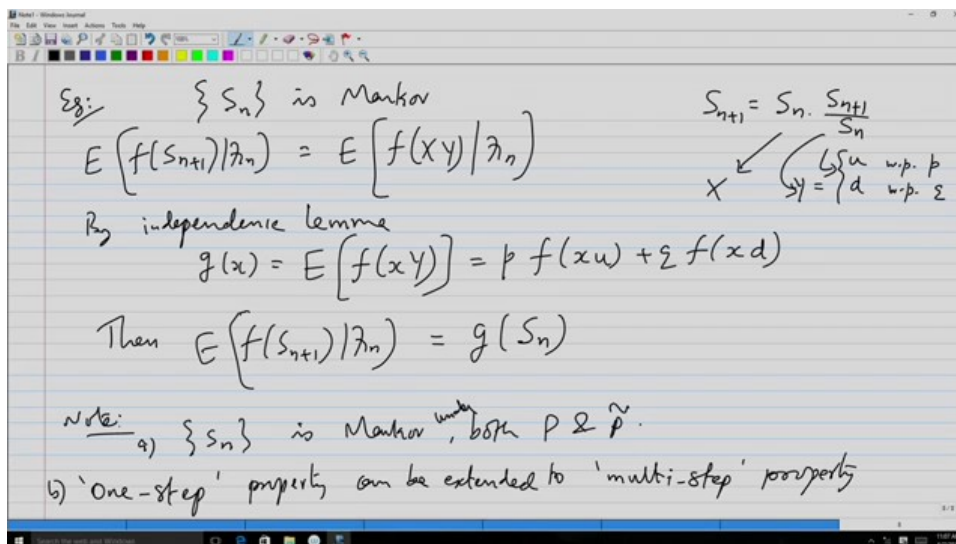 Note1 - Windows Journal
File Edit View Insert Actions Tools Help
B I
Eg: {Sn} is Markov
S_{n+1} = S_n . S_{n+1}/S_n
X
Y = { u w.p. p
d w.p. q
E[f(S_{n+1})|ℱ_n] = E[f(XY)|ℱ_n]
By independence lemma
g(x) = E[f(xY)] = p f(xu) + q f(xd)
Then E[f(S_{n+1})|ℱ_n] = g(S_n)
Note:
a) {S_n} is Markov, under both P & P̃.
b) 'One-step' property can be extended to 'multi-step' property
8/8
8
Search the web and Windows